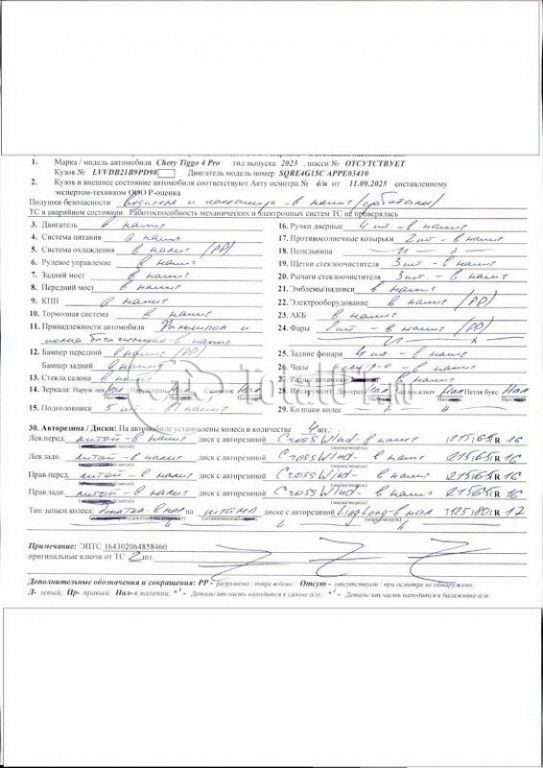 1. Марка / модель автомобиля Chery Tiggo 4 Pro год выпуска 2023, шасси № ОТСУТСТВУЕТ
Кузов № LVVDB21B9PD98 Двигатель модель номер SQRE4G15C APPE03410
2. Кузов и внешнее состояние автомобиля соответствуют Акту осмотра № б/н от 11.09.2025 составленному
экспертом-техником ООО Р-оценка
Подушки безопасности водителя и пассажира - в налич (сработали)
ТС в аварийном состоянии. Работоспособность механических и электронных систем ТС не проверялась
3. Двигатель в налич
4. Система питания в налич
5. Система охлаждения в налич (РР)
6. Рулевое управление в налич
7. Задний мост в налич
8. Передний мост в налич
9. КПП в налич
10. Тормозная система в налич
11. Принадлежности автомобиля
12. Бампер передний в налич (РР)
Бампер задний в налич
13. Стекла салона в налич
14. Зеркала: Наружн лев Нал Наружн прав Нал Салонное Нал
15. Подголовники 5 шт в налич
16. Ручки дверные 4 шт - в налич
17. Противосолнечные козырьки 2 шт - в налич
18. Пепельница
19. Щетки стеклоочистителя 3 шт - в налич
20. Рычаги стеклоочистителя 3 шт - в налич
21. Эмблемы/надписи в налич
22. Электрооборудование в налич (РР)
23. АКБ в налич
24. Фары 2 шт - в налич
25. Задние фонари 4 шт - в налич
26. Часы в налич
27. Радио динамики в налич
28. Инструмент: Нал Нал Петля букс Нал
29. Колпаки колес
TotalOFF.ru
30. Авторезина / Диски: На автомобиле установлены колеса в количестве 4 шт.:
Лев.перед. литой - в налич диск с авторезиной CrossWind - в налич 215/65/R 16
Лев.задн. литой - в налич диск с авторезиной CrossWind - в налич 215/65/R 16
Прав.перед. литой - в налич диск с авторезиной CrossWind - в налич 215/65/R 16
Прав.задн. литой - в налич диск с авторезиной CrossWind - в налич 215/65/R 16
Тип запаски колеса: в нал на штамп диске с авторезиной LingLong - в нал 125/80/R 17
Примечание: ЭПТС 164302064858460
оригинальные ключи от ТС 2 шт.
Дополнительные обозначения и сокращения: РР - разрушено / повреждено. Отсут - отсутствует / при осмотре не обнаружено.
Л- левый; Пр- правый; Нал- в наличии; *¹ - Деталь/зап.часть находится в салоне а/м; *² - Деталь/зап.часть находится в багажнике а/м.